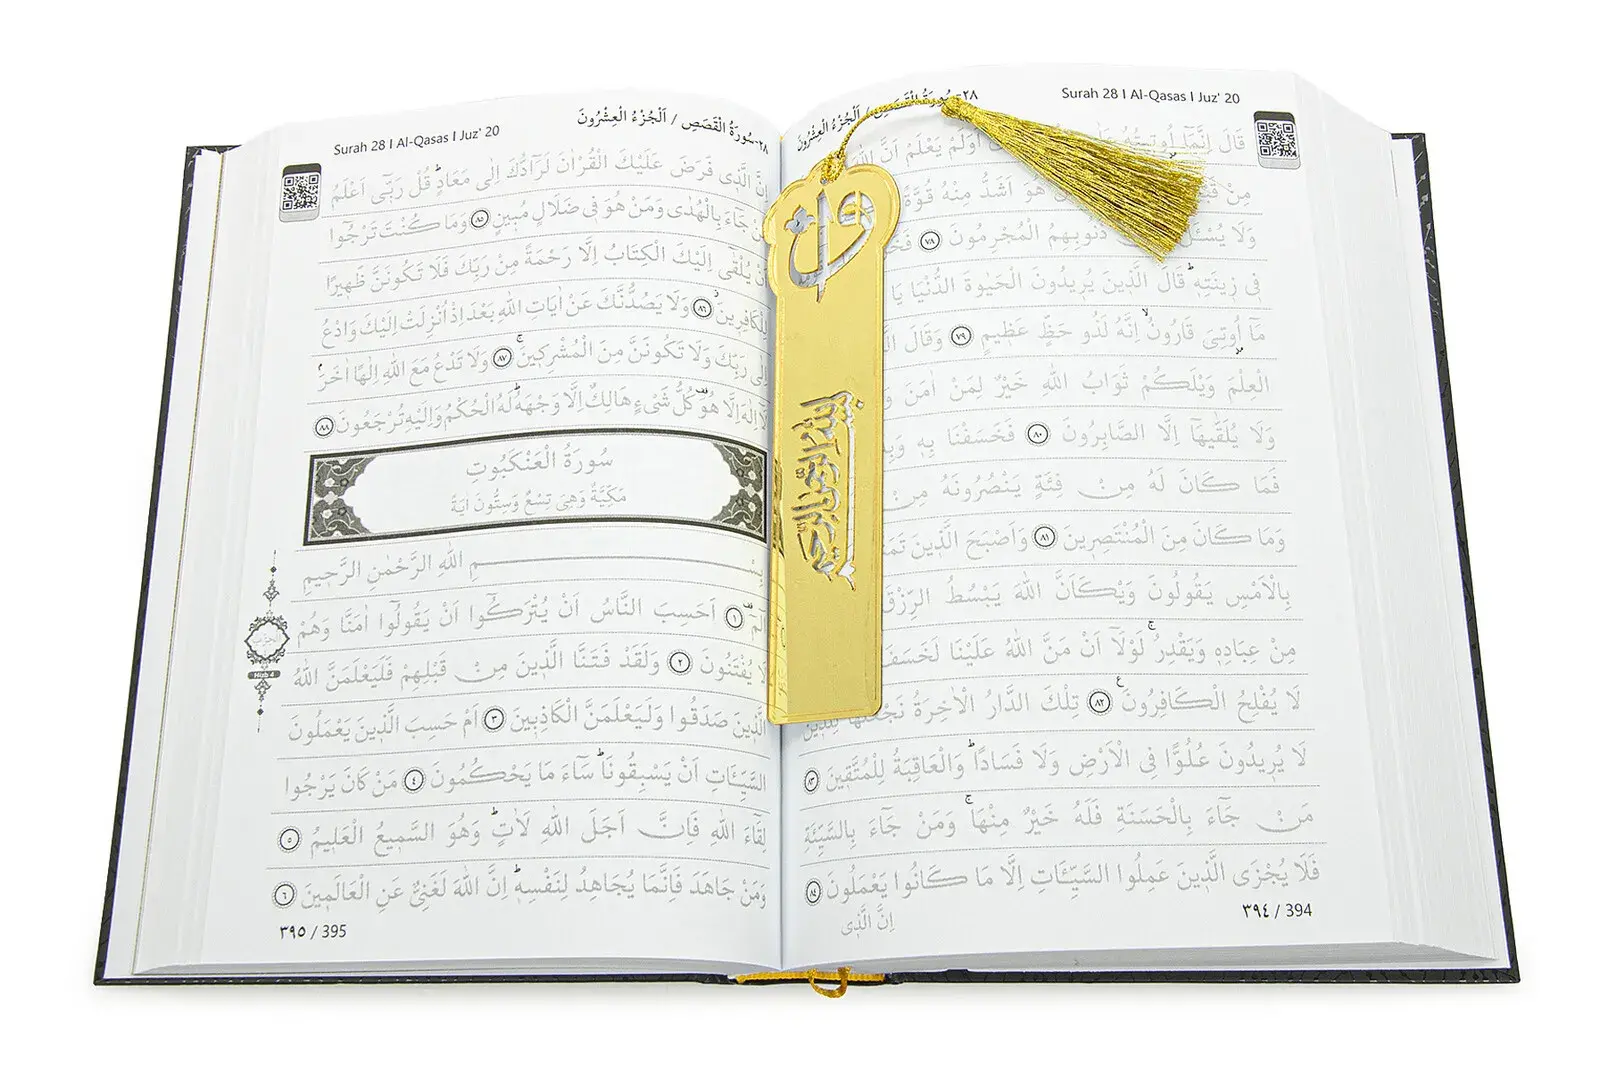 Surah 28 I Al-Qasas I Juz' 20
٢٨-سُورَةُ الْقَصَصِ / اَلْجُزْءُ الْعِشْرُونَ
قَالَ اِنَّمَٓا اُو۫ت۪يتُهُ اَوَلَمْ يَعْلَمْ اَنَّ اللّٰهَ
مِنْ هُوَ اَشَدُّ مِنْهُ قُوَّةً
وَلَا يُسْـَٔلُ ذُنُوبِهِمُ الْمُجْرِمُونَ ﴿٧٨﴾
ف۪ي ز۪ينَتِه۪ۜ قَالَ الَّذ۪ينَ يُر۪يدُونَ الْحَيٰوةَ الدُّنْيَا يَا
مَٓا اُو۫تِيَ قَارُونُۙ اِنَّهُ لَذُو حَظٍّ عَظ۪يمٍ ﴿٧٩﴾ وَقَالَ
الْعِلْمَ وَيْلَكُمْ ثَوَابُ اللّٰهِ خَيْرٌ لِمَنْ اٰمَنَ
وَلَا يُلَقّٰيهَٓا اِلَّا الصَّابِرُونَ ﴿٨٠﴾ فَخَسَفْنَا بِه۪
فَمَا كَانَ لَهُ مِنْ فِئَةٍ يَنْصُرُونَهُ مِنْ
وَمَا كَانَ مِنَ الْمُنْتَصِر۪ينَ ﴿٨١﴾ وَاَصْبَحَ الَّذ۪ينَ
بِالْاَمْسِ يَقُولُونَ وَيْكَاَنَّ اللّٰهَ يَبْسُطُ الرِّزْقَ
مِنْ عِبَادِه۪ وَيَقْدِرُۚ لَوْلَٓا اَنْ مَنَّ اللّٰهُ عَلَيْنَا لَخَسَفَ
لَا يُفْلِحُ الْكَافِرُونَ۟ ﴿٨٢﴾ تِلْكَ الدَّارُ الْاٰخِرَةُ نَجْعَلُهَا لِلَّذ۪ينَ
لَا يُر۪يدُونَ عُلُوًّا فِي الْاَرْضِ وَلَا فَسَادًاۜ وَالْعَاقِبَةُ لِلْمُتَّق۪ينَ ﴿٨٣﴾
مَنْ جَٓاءَ بِالْحَسَنَةِ فَلَهُ خَيْرٌ مِنْهَاۚ وَمَنْ جَٓاءَ بِالسَّيِّئَةِ
فَلَا يُجْزَى الَّذ۪ينَ عَمِلُوا السَّيِّـَٔاتِ اِلَّا مَا كَانُوا يَعْمَلُونَ ﴿٨٤﴾
اِنَّ الَّذ۪ي
٣٩٤ / 394
بسم الله الرحمن الرحيم
Surah 28 I Al-Qasas I Juz' 20
٢٨-سُورَةُ الْقَصَصِ / اَلْجُزْءُ الْعِشْرُونَ
اِنَّ الَّذ۪ي فَرَضَ عَلَيْكَ الْقُرْاٰنَ لَرَٓادُّكَ اِلٰى مَعَادٍۜ قُلْ رَبّ۪ٓي اَعْلَمُ
مَنْ جَٓاءَ بِالْهُدٰى وَمَنْ هُوَ ف۪ي ضَلَالٍ مُب۪ينٍ ﴿٨٥﴾ وَمَا كُنْتَ تَرْجُٓوا
اَنْ يُلْقٰٓى اِلَيْكَ الْكِتَابُ اِلَّا رَحْمَةً مِنْ رَبِّكَ فَلَا تَكُونَنَّ ظَه۪يرًا
لِلْكَافِر۪ينَۘ ﴿٨٦﴾ وَلَا يَصُدُّنَّكَ عَنْ اٰيَاتِ اللّٰهِ بَعْدَ اِذْ اُنْزِلَتْ اِلَيْكَ وَادْعُ
اِلٰى رَبِّكَ وَلَا تَكُونَنَّ مِنَ الْمُشْرِك۪ينَۚ ﴿٨٧﴾ وَلَا تَدْعُ مَعَ اللّٰهِ اِلٰهًا اٰخَرَۢ
لَٓا اِلٰهَ اِلَّا هُوَ۠ كُلُّ شَيْءٍ هَالِكٌ اِلَّا وَجْهَهُۜ لَهُ الْحُكْمُ وَاِلَيْهِ تُرْجَعُونَ ﴿٨٨﴾
سُورَةُ الْعَنْكَبُوتِ
مَكِّيَّةٌ وَهِيَ تِسْعٌ وَسِتُّونَ اٰيَةً
بِسْمِ اللّٰهِ الرَّحْمٰنِ الرَّح۪يمِ
الٓمٓ۠ ﴿١﴾ اَحَسِبَ النَّاسُ اَنْ يُتْرَكُٓوا اَنْ يَقُولُٓوا اٰمَنَّا وَهُمْ
لَا يُفْتَنُونَ ﴿٢﴾ وَلَقَدْ فَتَنَّا الَّذ۪ينَ مِنْ قَبْلِهِمْ فَلَيَعْلَمَنَّ اللّٰهُ
الَّذ۪ينَ صَدَقُوا وَلَيَعْلَمَنَّ الْكَاذِب۪ينَ ﴿٣﴾ اَمْ حَسِبَ الَّذ۪ينَ يَعْمَلُونَ
السَّيِّـَٔاتِ اَنْ يَسْبِقُونَاۜ سَٓاءَ مَا يَحْكُمُونَ ﴿٤﴾ مَنْ كَانَ يَرْجُوا
لِقَٓاءَ اللّٰهِ فَاِنَّ اَجَلَ اللّٰهِ لَاٰتٍۜ وَهُوَ السَّم۪يعُ الْعَل۪يمُ ﴿٥﴾
وَمَنْ جَاهَدَ فَاِنَّمَا يُجَاهِدُ لِنَفْسِه۪ۜ اِنَّ اللّٰهَ لَغَنِيٌّ عَنِ الْعَالَم۪ينَ ﴿٦﴾
الحزب
Hizb 4
٣٩٥ / 395